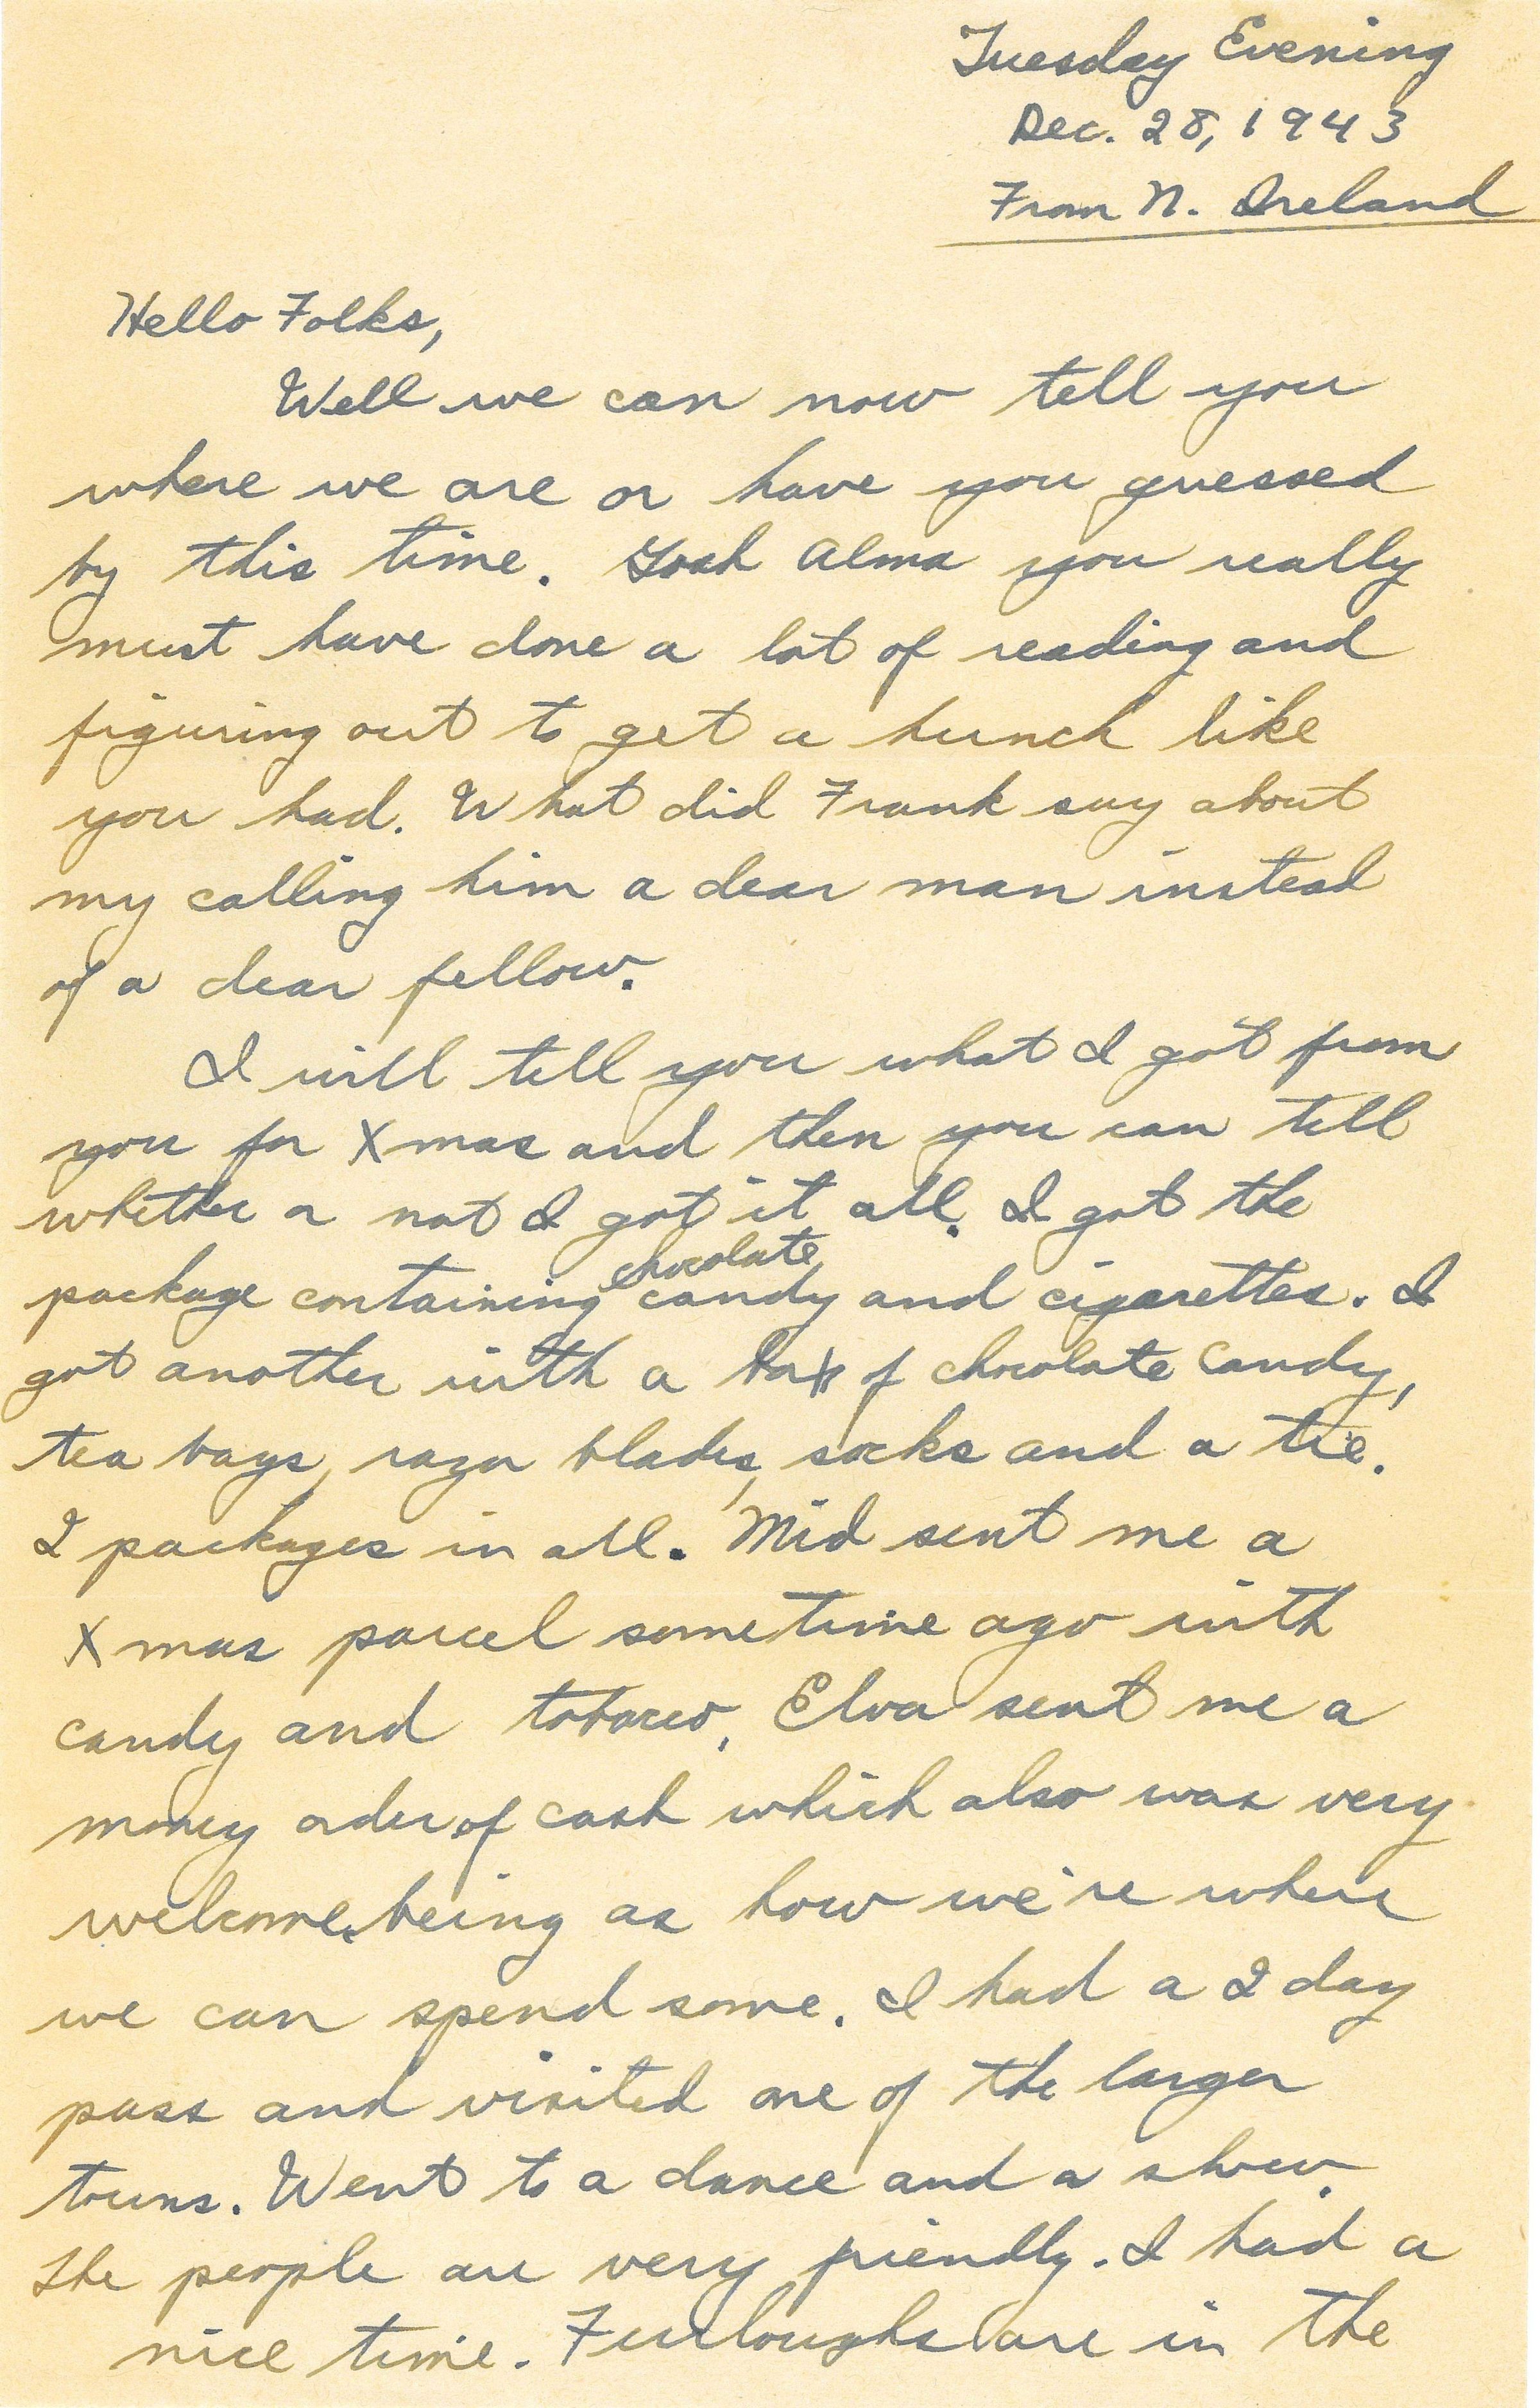 Tuesday Evening
Dec. 28, 1943
From N. Ireland
Hello Folks,
Well we can now tell you
where we are or have you guessed
by this time. Gosh Alma you really
must have done a lot of reading and
figuring out to get a hunch like
you had. What did Frank say about
my calling him a dear man instead
of a dear fellow.
I will tell you what I got from
you for Xmas and then you can tell
whether or not I got it all. I got the
chocolate
package containing candy and cigarettes. I
got another with a box of chocolate candy,
tea bags, razor blades, socks and a tie.
2 packages in all. Mid sent me a
Xmas parcel sometime ago with
candy and tobacco. Elva sent me a
money order of cash which also was very
welcome, being as how we're where
we can spend some. I had a 2 day
pass and visited one of the larger
towns. Went to a dance and a show.
The people are very friendly. I had a
nice time. Furloughs are in the